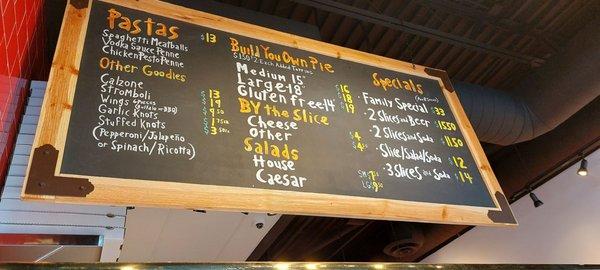 Pastas
Spaghetti Meatballs $13
Vodka Sauce Penne
Chicken Pesto Penne
Other Goodies
Calzone $13
Stromboli $19
Wings
Garlic Knots
Stuffed Knots
(Pepperoni/Jalapeño
or Spinach/Ricotta)
Build You Own Pie
Medium 15" $16
Large 18" $18
Gluten free 14" $19
By the Slice
Cheese $4
Other
Salads
House
Caesar
Specials
Family Special $33
2 Slices and Beer $15.50
2 Slices and Soda $11.50
Slice/Salad/Soda $12
3 Slices and Soda $14